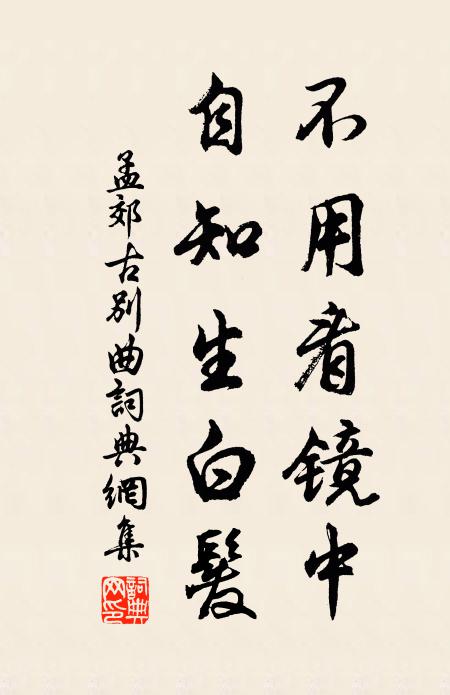 不用看镜中
自知生白髮
孟郊古别曲詞典網集
詞典網印